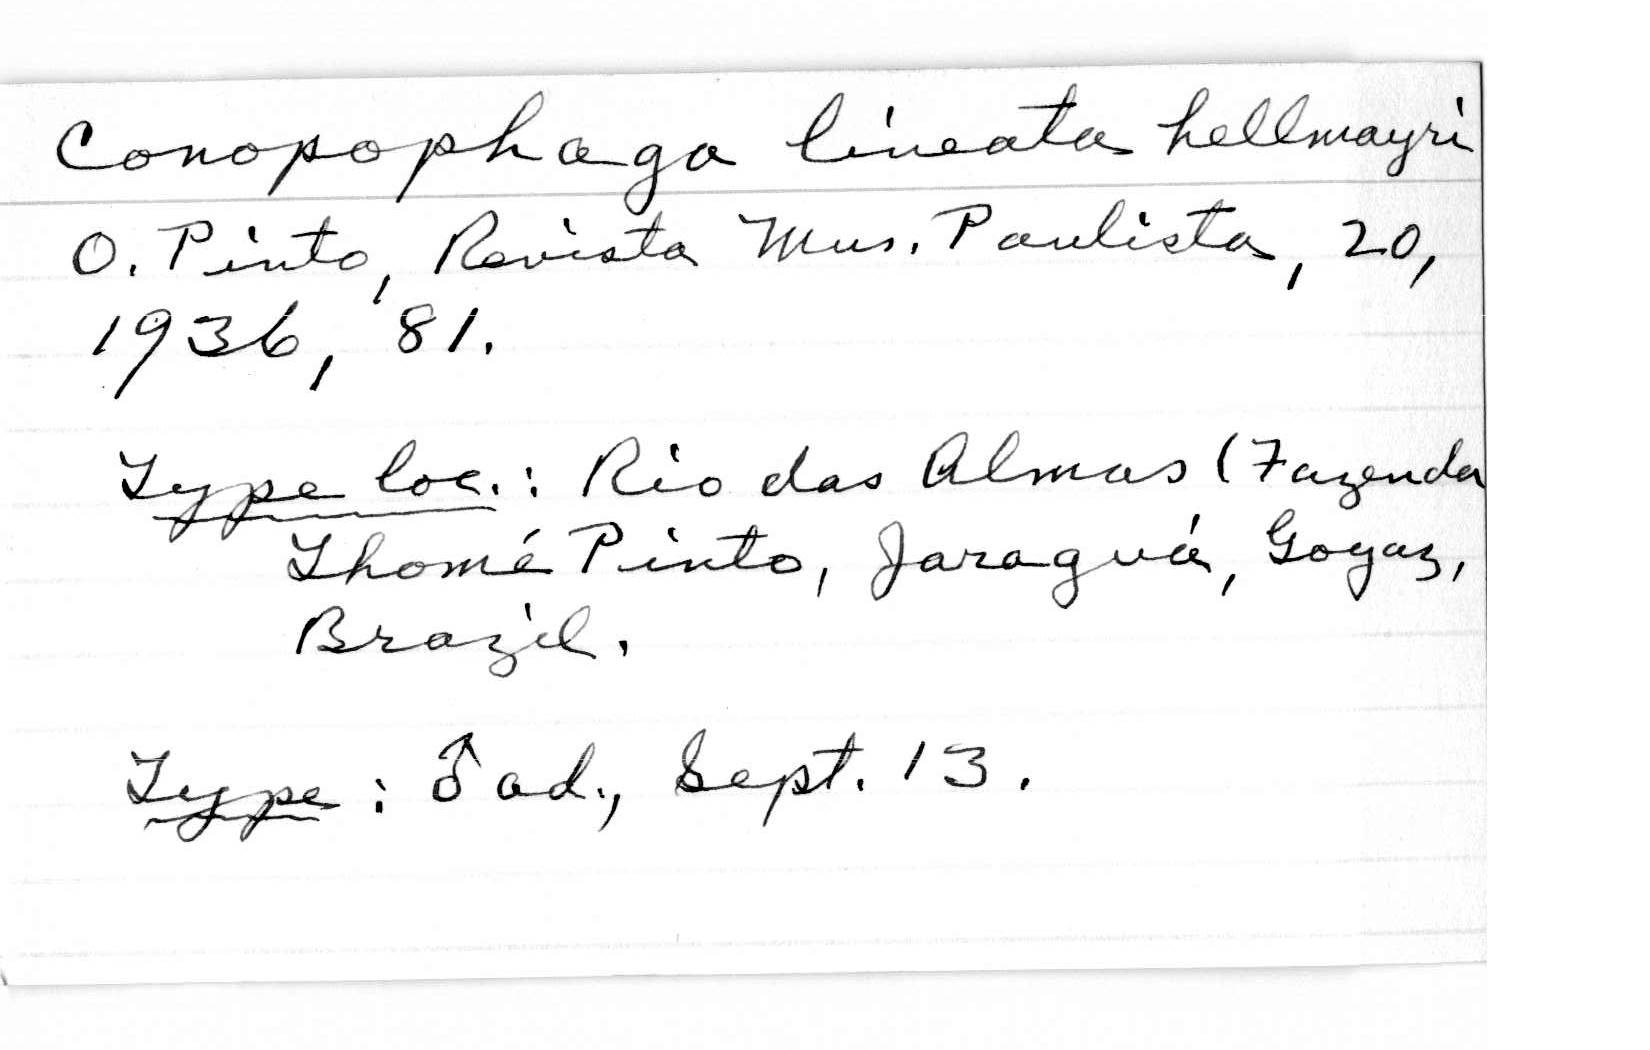 Conopophaga lineata hellmayri
O. Pinto, Revista Mus. Paulista, 20,
1936, 81.
Type loc.: Rio das Almas (Fazenda
Thomé Pinto, Jaraguá, Goyaz,
Brazil.
Type: ♂ ad., Sept. 13.